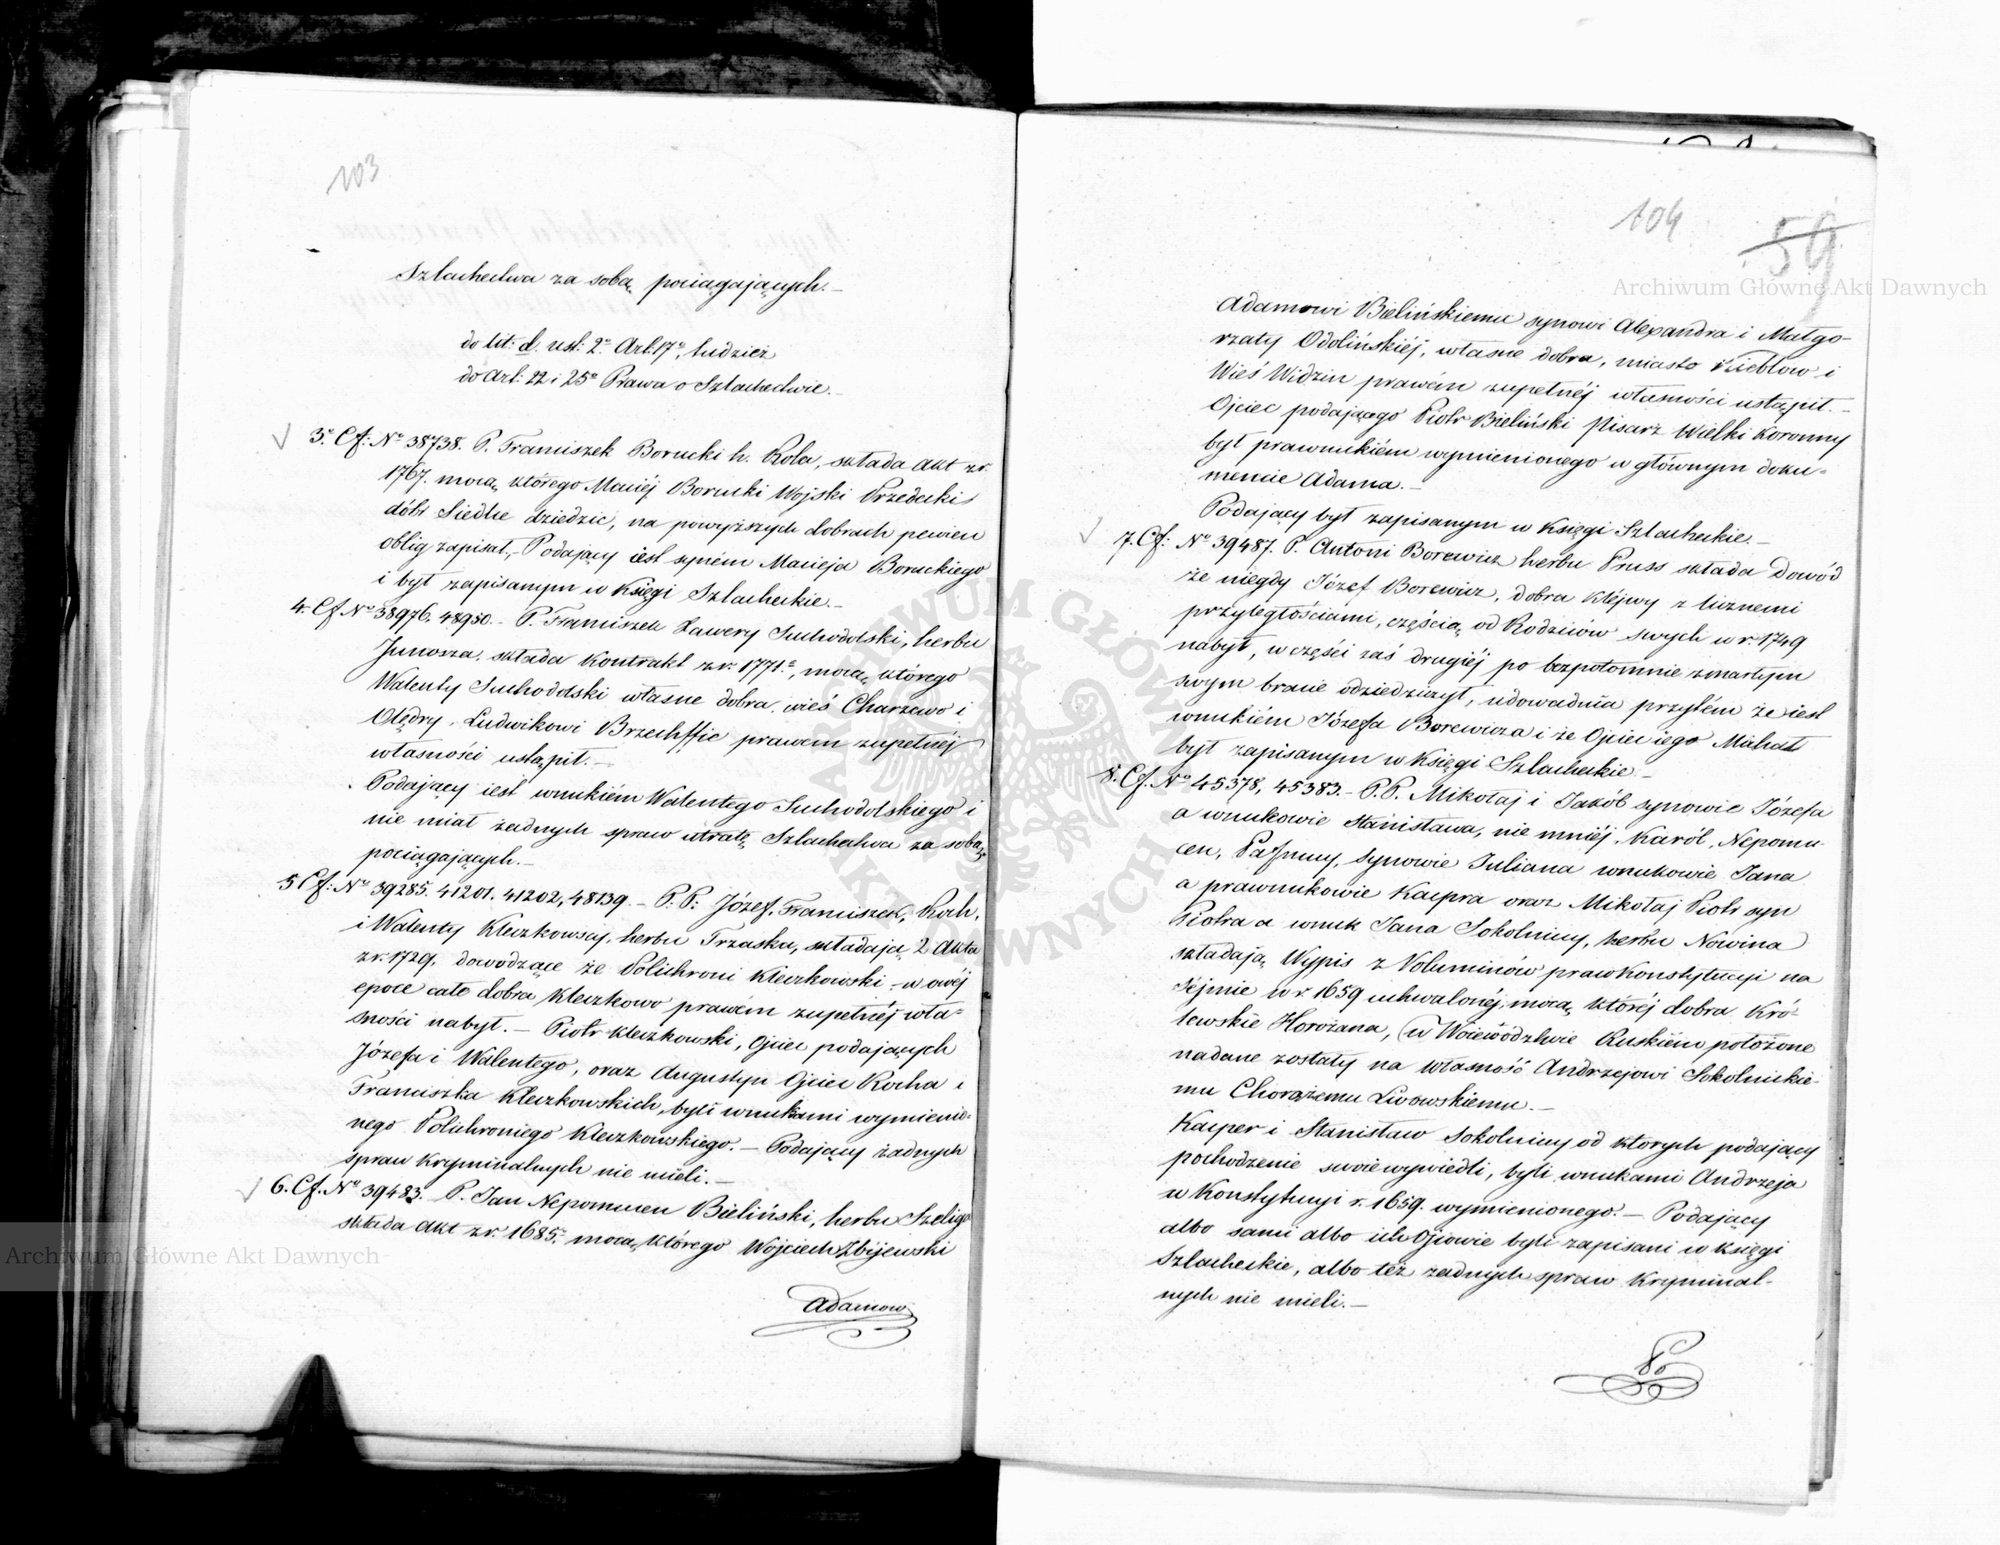 103
Szlachectwa za sobą pociągających.—
do lit: d. ust: 2º Art: 17º, tudzież
do Art: 22 i 25º Prawa o Szlachectwie.—
3. Cf: Nº 38738. P. Franciszek Borucki h. Rola, składa Akt z r.
1767. mocą którego Maciéj Borucki Wojski Przedecki
dóbr Siedlce dziedzic, na powyższych dobrach pewien
oblig zapisał,— Podający iest synem Macieja Boruckiego
i był zapisanym w Księgi Szlacheckie.—
4. Cf Nº 38976, 48950.— P. Franciszek Xawery Suchodolski, herbu
Junosza, składa Kontrakt z r. 1771º, mocą którego
Walenty Suchodolski własne dobra, wieś Charzewo i
Olędry, Ludwikowi Brzechffie prawem zupełnéj
własności ustąpił.—
Podający iest wnukiém Walentego Suchodolskiego i
nie miał żadnych spraw utratę Szlachectwa za sobą
pociągających.—
5 Cf: Nº 39285. 41201. 41202, 48139.— P. P. Józef, Franciszek, Roch,
i Walenty Kleczkowscy, herbu Trzaska, składają 2 Akta
z r. 1729. dowodzące że Polichroni Kleczkowski - w owéj
epoce całe dobra Kleczkowo prawém zupełnéj wła=
sności nabył.— Piotr Kleczkowski, Ojciec podających
Józefa i Walentego, oraz Augustyn Ojciec Rocha i
Franciszka Kleczkowskich, byli wnukami wymienio=
nego Polichroniego Kleczkowskiego.— Podający żadnych
spraw Kryminalnych nie mieli.—
6. Cf. Nº 39483. P. Jan Nepomucen Bieliński, herbu Szeliga
składa Akt z r. 1685. mocą którego Wojciech Zbijewski
Adamow
104
59
Adamowi Bielińskiemu synowi Alexandra i Małgo-
rzaty Odolińskiéj, własne dobra, miasto Kiebłow i
Wieś Widzin prawém zupełnéj własności ustąpił.—
Ojciec podającego Piotr Bieliński Pisarz Wielki Koronny
był prawnukiém wymienionego w głównym doku=
mencie Adama.—
Podający był zapisanym w Księgi Szlacheckie.—
7. Cf: Nº 39487. P. Antoni Borewicz herbu Pruss składa Dowód
że niegdy Józef Borewicz, dobra Kléjwy z licznemi
przyległościami, częścią od Rodziców swych w r. 1749
nabył, w części zaś drugiéj po bezpotomnie zmarłym
swym bracie odziedziczył, udowadnia przytém że iest
wnukiém Józefa Borewicza i że Ojciec iego Michał
był zapisanym w Księgi Szlacheckie.—
8. Cf. Nº 45378, 45383.— P. P. Mikołaj i Jakób synowie Józefa
a wnukowie Stanisława, nie mniéj, Karól, Nepomu-
cen, Pafnucy, synowie Juliana wnukowie Jana
a prawnukowie Kacpra oraz Mikołaj Piotr syn
Piotra a wnuk Jana Sokolniccy, herbu Nowina
składają Wypis z Voluminów praw Konstytucyi na
Séjmie w r. 1659 uchwalonéj, mocą któréj dobra Kró-
lewskie Horożana, w Woiewództwie Ruskiém położone
nadane zostały na własność Andrzejowi Sokolnickie-
mu Chorążemu Lwowskiemu.—
Kacper i Stanisław Sokolniccy od których podający
pochodzenie swoie wywiedli, byli wnukami Andrzeja
w Konstytucyi r. 1659. wymienionego.— Podający
albo sami albo ich Ojcowie byli zapisani w Księgi
Szlacheckie, albo też żadnych spraw Kryminal-
nych nie mieli.—
Archiwum Główne Akt Dawnych
Archiwum Główne Akt Dawnych
ARCHIWUM GŁÓWNE AKT DAWNYCH